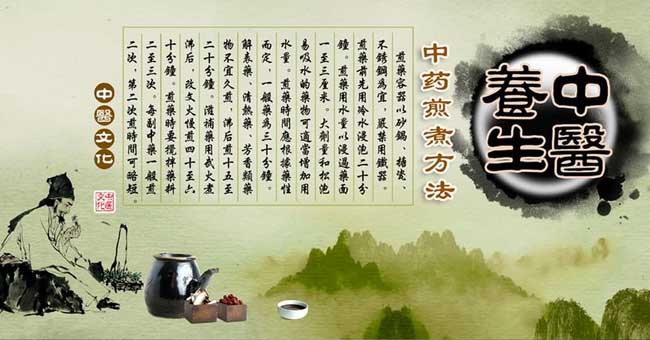 中醫
養生
中药煎煮方法
煎藥容器以砂鍋、搪瓷、
不銹鋼爲宜，嚴禁用鐵器。
煎藥前先用冷水浸泡二十分
鐘。煎藥用水量以浸過藥面
一至三厘米。大劑量和松泡
易吸水的藥物可適當增加用
水量。煎藥時間應根據藥性
而定，一般藥爲三十分鐘。
解表藥、清熱藥、芳香類藥
物不宜久煎，沸后煎十五至
二十分鐘。滋補藥用武火煮
沸后，改文火慢煎四十至六
十分鐘。煎藥時要攪拌藥料
二至三次。每副中藥一般煎
二次，第二次煎時間可略短。
中醫文化
中医
文化